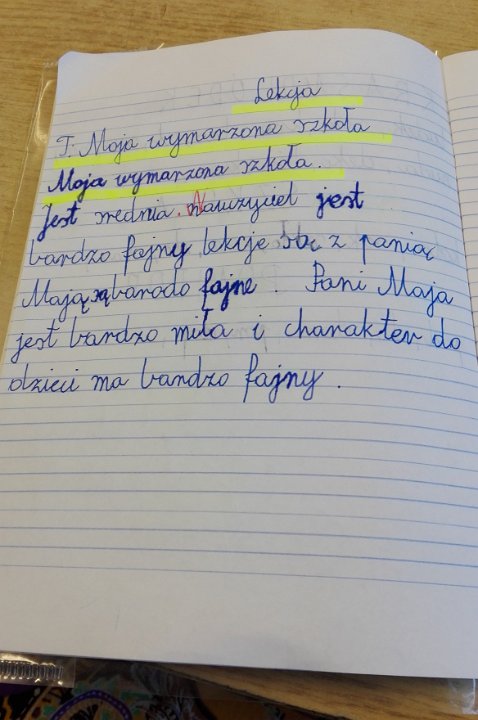 Lekcja
T: Moja wymarzona szkoła
Moja wymarzona szkoła.
Jest srednia. Nauczyciel jest
bardzo fajny lekcje są z panią
Mają są barodo fajne. Pani Maja
jest bardzo miła i charakter do
dzieci ma bardzo fajny.